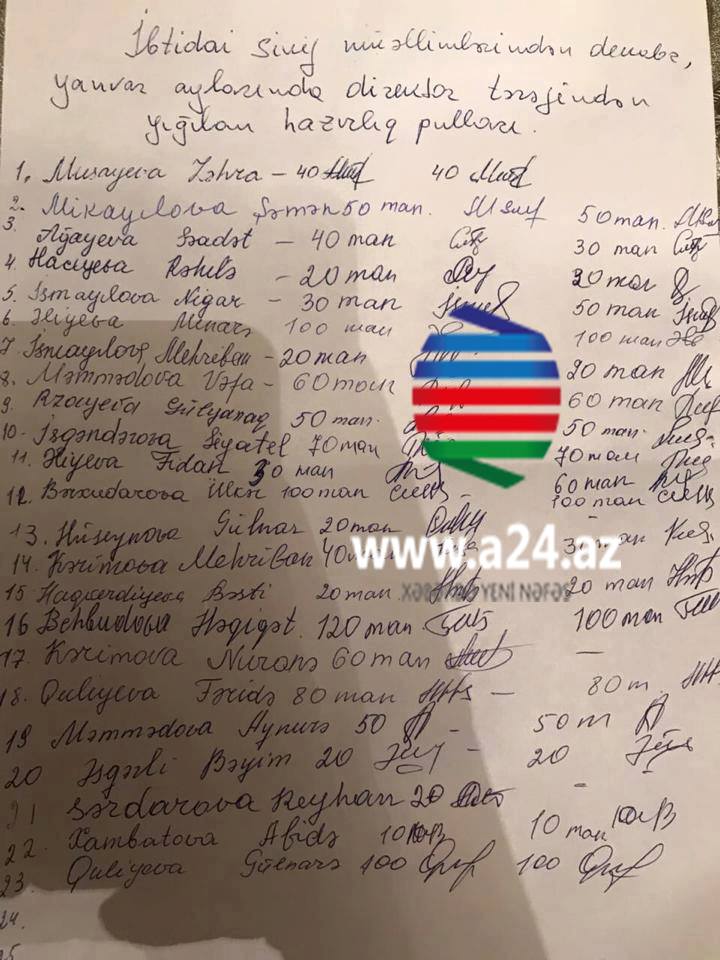 İbtidai sinif müəllimlərindən dekabr,
yanvar aylarında direktor tərəfindən
yığılan hazırlıq pulları.
1. Musayeva Zəhra - 40 40
2. Mikayılova Səmən 50 man. 50 man.
3. Ağayeva Səadət - 40 man 30 man
4. Hacıyeva Rəhilə - 20 man 20 man
5. İsmayılova Nigar - 30 man 50 man
6. Əliyeva Minarə 100 man 100 man
7. İsmayılova Mehriban - 20 man 20 man
8. Məmmədova Vəfa - 60 man 60 man
9. Rzayeva Gülyanaq 50 man. 50 man.
10. İsgəndərova Siyatel 70 man 70 man
11. Əliyeva Fidan 30 man 60 man
12. Bərxudarova Ülkər 100 man 100 man
13. Hüseynova Gülnar 20 man man
14. Kərimova Mehriban 40 man
www.a24.az
XƏBƏRDƏ YENİ NƏFƏS
15 Haqverdiyeva Bəsti 20 man 20 man
16 Behbudova Həqiqət. 120 man 100 man
17. Kərimova Nuranə 60 man -
18. Quliyeva Fəridə 80 man - 80 m.
19 Məmmədova Aynurə 50 - 50 m
20 Əsgərli Bəyim 20 - 20
21 Sərdarova Reyhan 20 -
22. Xambatova Abidə 10 10 man
23. Quliyeva Gülnarə 100 100
24.
25